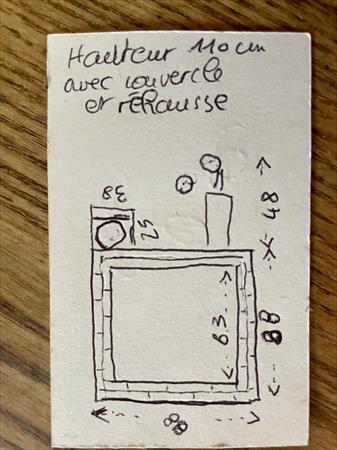 Hauteur 110 cm
avec couvercle
et réhausse
38
25
48
63
88